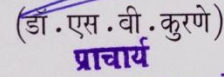 (डॉ . एस . वी . कुरणे)
प्राचार्य